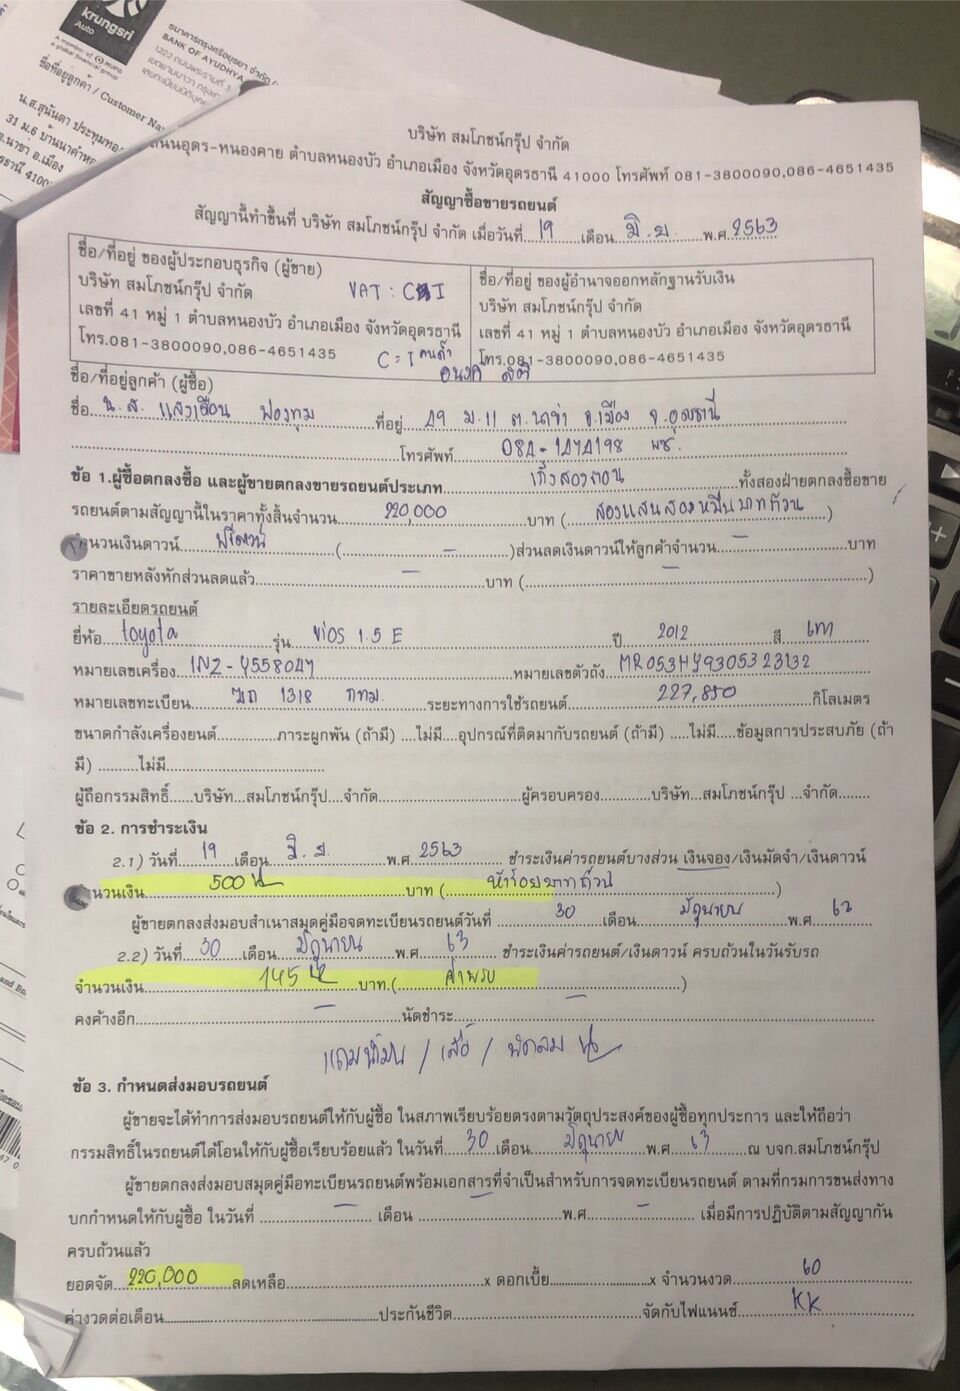 krungsri
Auto
A member of MUFG
a global financial group
ธนาคารกรุงศรีอยุธยา จำกัด
BANK OF AYUDHYA
1222 ถนนพระรามที่ 3
ชื่อที่อยู่ลูกค้า / Customer Na
น.ส.สุนันตา ประทุมทอ
31 ม.6 บ้านนาคำห
ต.นาข่า อ.เมือง
บริษัท สมโภชน์กรุ๊ป จำกัด
ถนนอุดร-หนองคาย ตำบลหนองบัว อำเภอเมือง จังหวัดอุดรธานี 41000 โทรศัพท์ 081-3800090,086-4651435
สัญญาซื้อขายรถยนต์
สัญญานี้ทำขึ้นที่ บริษัท สมโภชน์กรุ๊ป จำกัด เมื่อวันที่..19......เดือน..มิ.ย........พ.ศ.2563
ชื่อ/ที่อยู่ ของผู้ประกอบธุรกิจ (ผู้ขาย)
บริษัท สมโภชน์กรุ๊ป จำกัด VAT :
เลขที่ 41 หมู่ 1 ตำบลหนองบัว อำเภอเมือง จังหวัดอุดรธานี
โทร.081-3800090,086-4651435
ชื่อ/ที่อยู่ ของผู้อำนาจออกหลักฐานรับเงิน
บริษัท สมโภชน์กรุ๊ป จำกัด
เลขที่ 41 หมู่ 1 ตำบลหนองบัว อำเภอเมือง จังหวัดอุดรธานี
โทร.081-3800090,086-4651435
ชื่อ/ที่อยู่ลูกค้า (ผู้ซื้อ)
ชื่อ...น.ส. แสงเดือน ฟองทุม ที่อยู่ 49 ม.11 ต.นาข่า อ.เมือง จ.อุดรธานี
โทรศัพท์
ข้อ 1.ผู้ซื้อตกลงซื้อ และผู้ขายตกลงขายรถยนต์ประเภท เก๋งสองตอน ทั้งสองฝ่ายตกลงซื้อขาย
รถยนต์ตามสัญญานี้ในราคาทั้งสิ้นจำนวน 220,000 บาท ( สองแสนสองหมื่นบาทถ้วน )
จำนวนเงินดาวน์ ฟรีดาวน์ ( - )ส่วนลดเงินดาวน์ให้ลูกค้าจำนวน - บาท
ราคาขายหลังหักส่วนลดแล้ว - บาท ( - )
รายละเอียดรถยนต์
ยี่ห้อ toyota รุ่น VIOS 1.5 E ปี 2012 สี เทา
หมายเลขเครื่อง 1NZ-Y558047 หมายเลขตัวถัง MR053HY9305323132
หมายเลขทะเบียน 1318 กทม. ระยะทางการใช้รถยนต์ 227,850 กิโลเมตร
ขนาดกำลังเครื่องยนต์..............ภาระผูกพัน (ถ้ามี) ....ไม่มี....อุปกรณ์ที่ติดมากับรถยนต์ (ถ้ามี) .....ไม่มี.....ข้อมูลการประสบภัย (ถ้า
มี) ..........ไม่มี...............
ผู้ถือกรรมสิทธิ์......บริษัท...สมโภชน์กรุ๊ป....จำกัด..........ผู้ครอบครอง...........บริษัท...สมโภชน์กรุ๊ป ...จำกัด........
ข้อ 2. การชำระเงิน
2.1) วันที่ 19 เดือน มิ.ย. พ.ศ 2563 ชำระเงินค่ารถยนต์บางส่วน เงินจอง/เงินมัดจำ/เงินดาวน์
จำนวนเงิน 500 บาท ( ห้าร้อยบาทถ้วน )
ผู้ขายตกลงส่งมอบสำเนาสมุดคู่มือจดทะเบียนรถยนต์วันที่ 30 เดือน มิถุนายน พ.ศ. 63
2.2) วันที่ 30 เดือน มิถุนายน พ.ศ 63 ชำระเงินค่ารถยนต์/เงินดาวน์ ครบถ้วนในวันรับรถ
จำนวนเงิน 145 บาท.( ค่าพรบ )
คงค้างอีก - นัดชำระ -
แถมน้ำมัน / เสื้อ / พัดลม
ข้อ 3. กำหนดส่งมอบรถยนต์
ผู้ขายจะได้ทำการส่งมอบรถยนต์ให้กับผู้ซื้อ ในสภาพเรียบร้อยตรงตามวัตถุประสงค์ของผู้ซื้อทุกประการ และให้ถือว่า
กรรมสิทธิ์ในรถยนต์ได้โอนให้กับผู้ซื้อเรียบร้อยแล้ว ในวันที่ 30 เดือน มิถุนายน พ.ศ 63 ณ บจก.สมโภชน์กรุ๊ป
ผู้ขายตกลงส่งมอบสมุดคู่มือทะเบียนรถยนต์พร้อมเอกสารที่จำเป็นสำหรับการจดทะเบียนรถยนต์ ตามที่กรมการขนส่งทาง
บกกำหนดให้กับผู้ซื้อ ในวันที่ - เดือน - พ.ศ - เมื่อมีการปฏิบัติตามสัญญากัน
ครบถ้วนแล้ว
ยอดจัด 220,000 ลดเหลือ x ดอกเบี้ย x จำนวนงวด 60
ค่างวดต่อเดือน ประกันชีวิต จัดกับไฟแนนซ์ KK